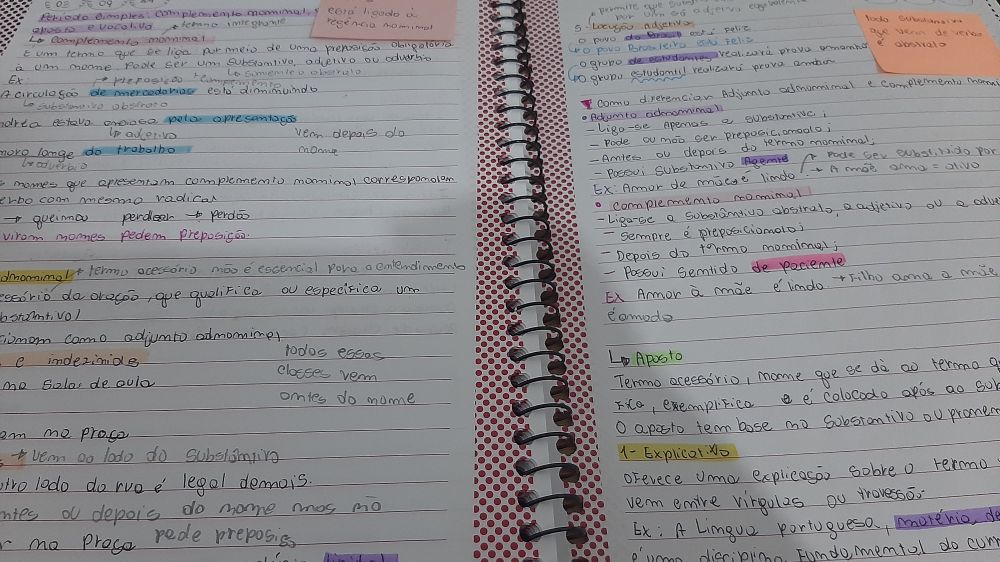 Período simples: complemento nominal,
aposto e vocativo → termo integrante
↳ complemento nominal
É um termo que se liga por meio de uma preposição obrigatória
a um nome. Pode ser um substantivo, adjetivo ou advérbio
↳ somente o abstrato
Ex: → preposição + complemento
A circulação de mercadorias está diminuindo
↳ substantivo abstrato
ndréa estava ansiosa pela apresentação
↳ adjetivo vem depois do
moro longe do trabalho nome
↳ advérbio
s nomes que apresentam complemento nominal correspondem
erbo com mesmo radical
→ queimou perdoar → perdão
viram nomes pedem preposição.
dnominal → termo acessório não é essencial para o entendimento
essório da oração, que qualifica ou especifica um
bstantivo)
cionam como adjunto adnominal
e indefinidos todos essas
na sala de aula classes vem
antes do nome
am na praça
→ vem ao lado do substântivo
utro lado da rua é legal demais.
ntes ou depois do nome mas nõ
r na praça pede preposiç
está ligado à
regência nominal
permite que subst
por um adjetivo equivalente
5 - Locução adjetiva
O povo do Brasil está feliz
↳ O povo Brasileiro está feliz
O grupo de estudantes realizará prova amanhã
↳ O grupo estudantil realizará prova amanh
todo substantivo
que vem de verbo
é abstrato
Como diferenciar Adjunto adnominal e complemento nomi
• Adjunto adnominal
- Liga-se Apenas a substantivo;
- Pode ou não ser preposicionado;
- Antes ou depois do termo nominal;
- Possui substantivo Agente → Pode ser substituído por
Ex: Amor de mãe é lindo → A mãe ama = ativo
• complemento nominal
- Liga-se a substântivo abstrato, a adjetivo ou a advé
- Sempre é preposicionado;
- Depois do termo nominal;
- Possui sentido de paciente
Ex Amor à mãe é lindo → Filho ama a mãe
é amada
↳ Aposto
Termo acessório, nome que se dá ao termo q
fica, exemplifica e é colocado após ao sub
O aposto tem base no substantivo ou pronom
1- Explicativo
oferece uma explicação sobre o termo
vem entre vírgulas ou travessão.
Ex: A Língua portuguesa, matéria de
é uma disciplina fundamental do curr